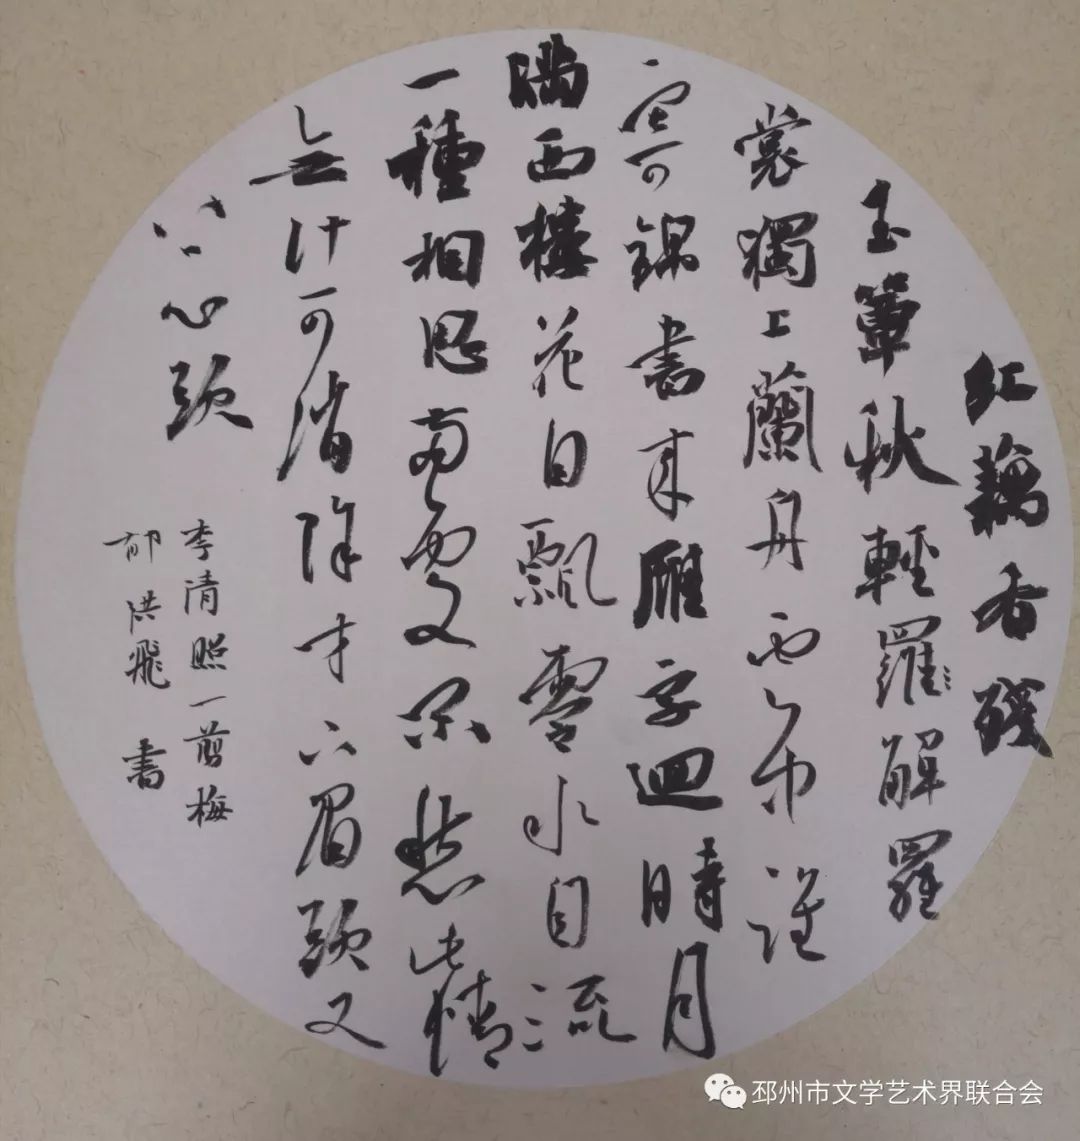 紅藕香殘
玉簟秋輕羅解羅
裳獨上蘭舟雲中誰
寄錦書來雁字迴時月
滿西樓花自飄零水自流
一種相思兩處閑愁此情
無計可消除才下眉頭又
上心頭
李清照一剪梅
郁洪飛書
邳州市文学艺术界联合会